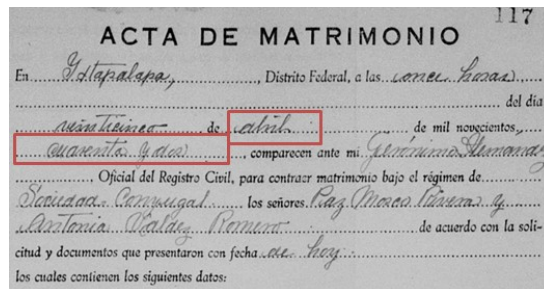 117
ACTA DE MATRIMONIO
En Ixtapalapa, , Distrito Federal, a las once horas
del día
veinticinco de abril de mil novecientos,
cuarenta y dos , comparecen ante mi Gerónimo Hernández
, Oficial del Registro Civil, para contraer matrimonio bajo el régimen de
Sociedad Conyugal los señores Paz Moses Rivera y
Antonia Valdez Romero de acuerdo con la soli-
citud y documentos que presentaron con fecha de hoy
los cuales contienen los siguientes datos: